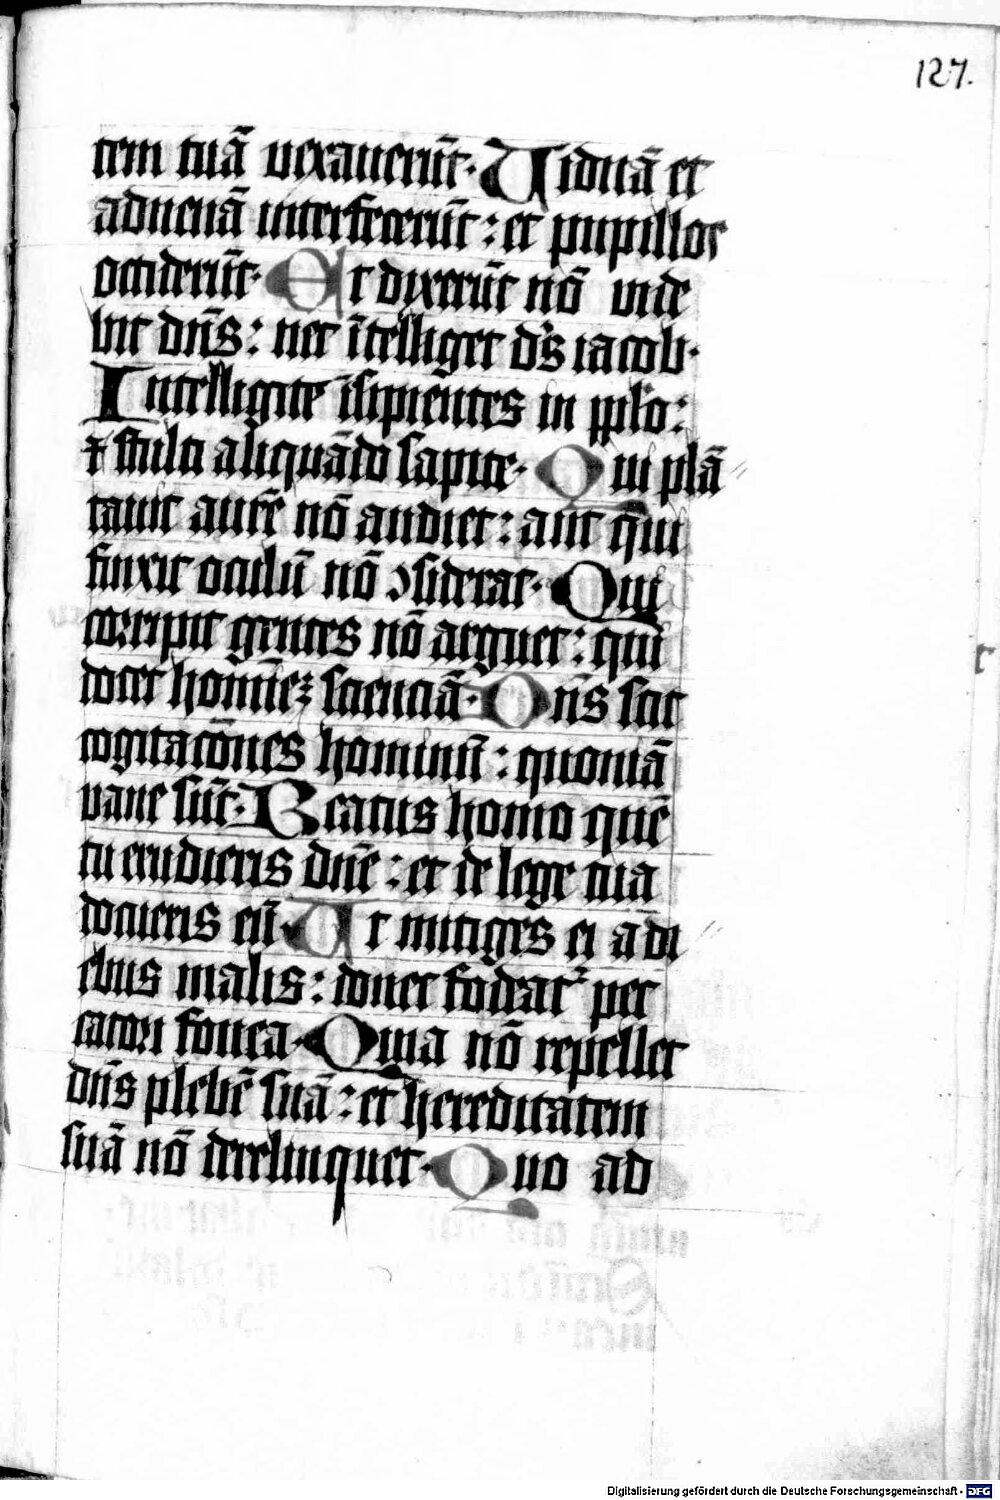 127.
tem tuā vexauerūt. Uiduā et
aduenā interfecerūt : et pupillos
occiderūt. Et dixerūt nō vide
bit dn̄s : nec ītelliget d's iacob.
Intelligite īsipientes in ppl'o :
⁊ stulti aliquādo sapite. Qui plā
tauit aurē nō audiet : aut qui
finxit oculū nō ↄsiderat. Qui
corripit gentes nō arguet : qui
docet homīeꝫ scienciā. Dn̄s scit
cogitacōnes hominū : quoniā
vane sūt. Beatus homo quē
tu erudieris dn̄e : et de lege tua
docueris eū. Ut mitiges ei a di
ebus malis : donec fodeat᷑ pec
catori fouea. Quia nō repellet
dn̄s plebē suā : et hereditatem
suā nō derelinquet. Quo ad
Digitalisierung gefördert durch die Deutsche Forschungsgemeinschaft - DFG